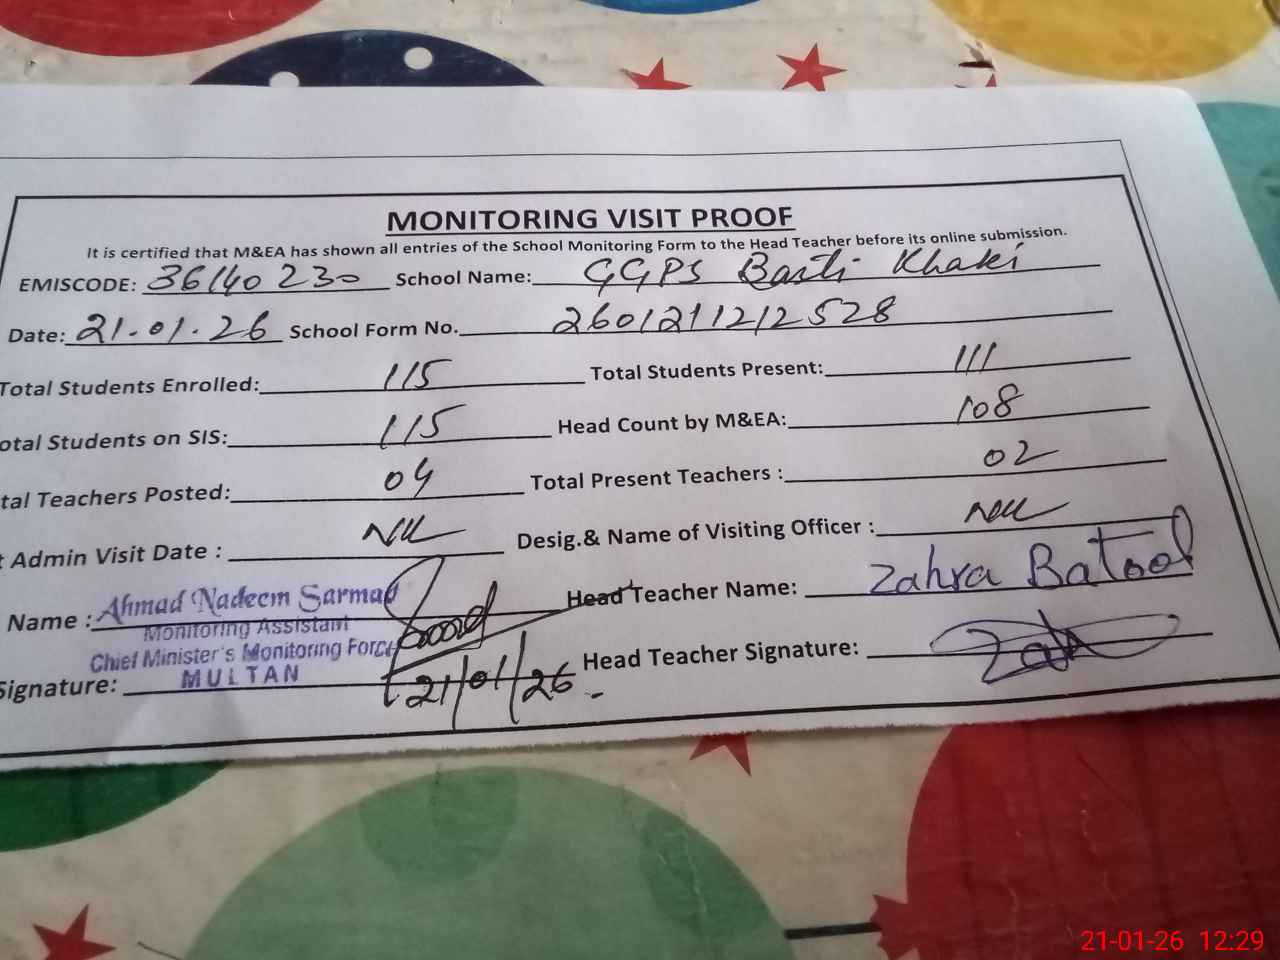 MONITORING VISIT PROOF
It is certified that M&EA has shown all entries of the School Monitoring Form to the Head Teacher before its online submission.
EMISCODE: 36140230 School Name: GGPS Basti Khaki
Date: 21.01.26 School Form No. 2601211212528
Total Students Enrolled: 115 Total Students Present: 111
otal Students on SIS: 115 Head Count by M&EA: 108
tal Teachers Posted: 04 Total Present Teachers : 02
t Admin Visit Date : NIL Desig.& Name of Visiting Officer : NIL
Name : Ahmad Nadeem Sarmad Head Teacher Name: Zahra Batool
Monitoring Assistant
Chief Minister's Monitoring Force
MULTAN
Signature: 21/01/26 Head Teacher Signature: Zah
21-01-26 12:29